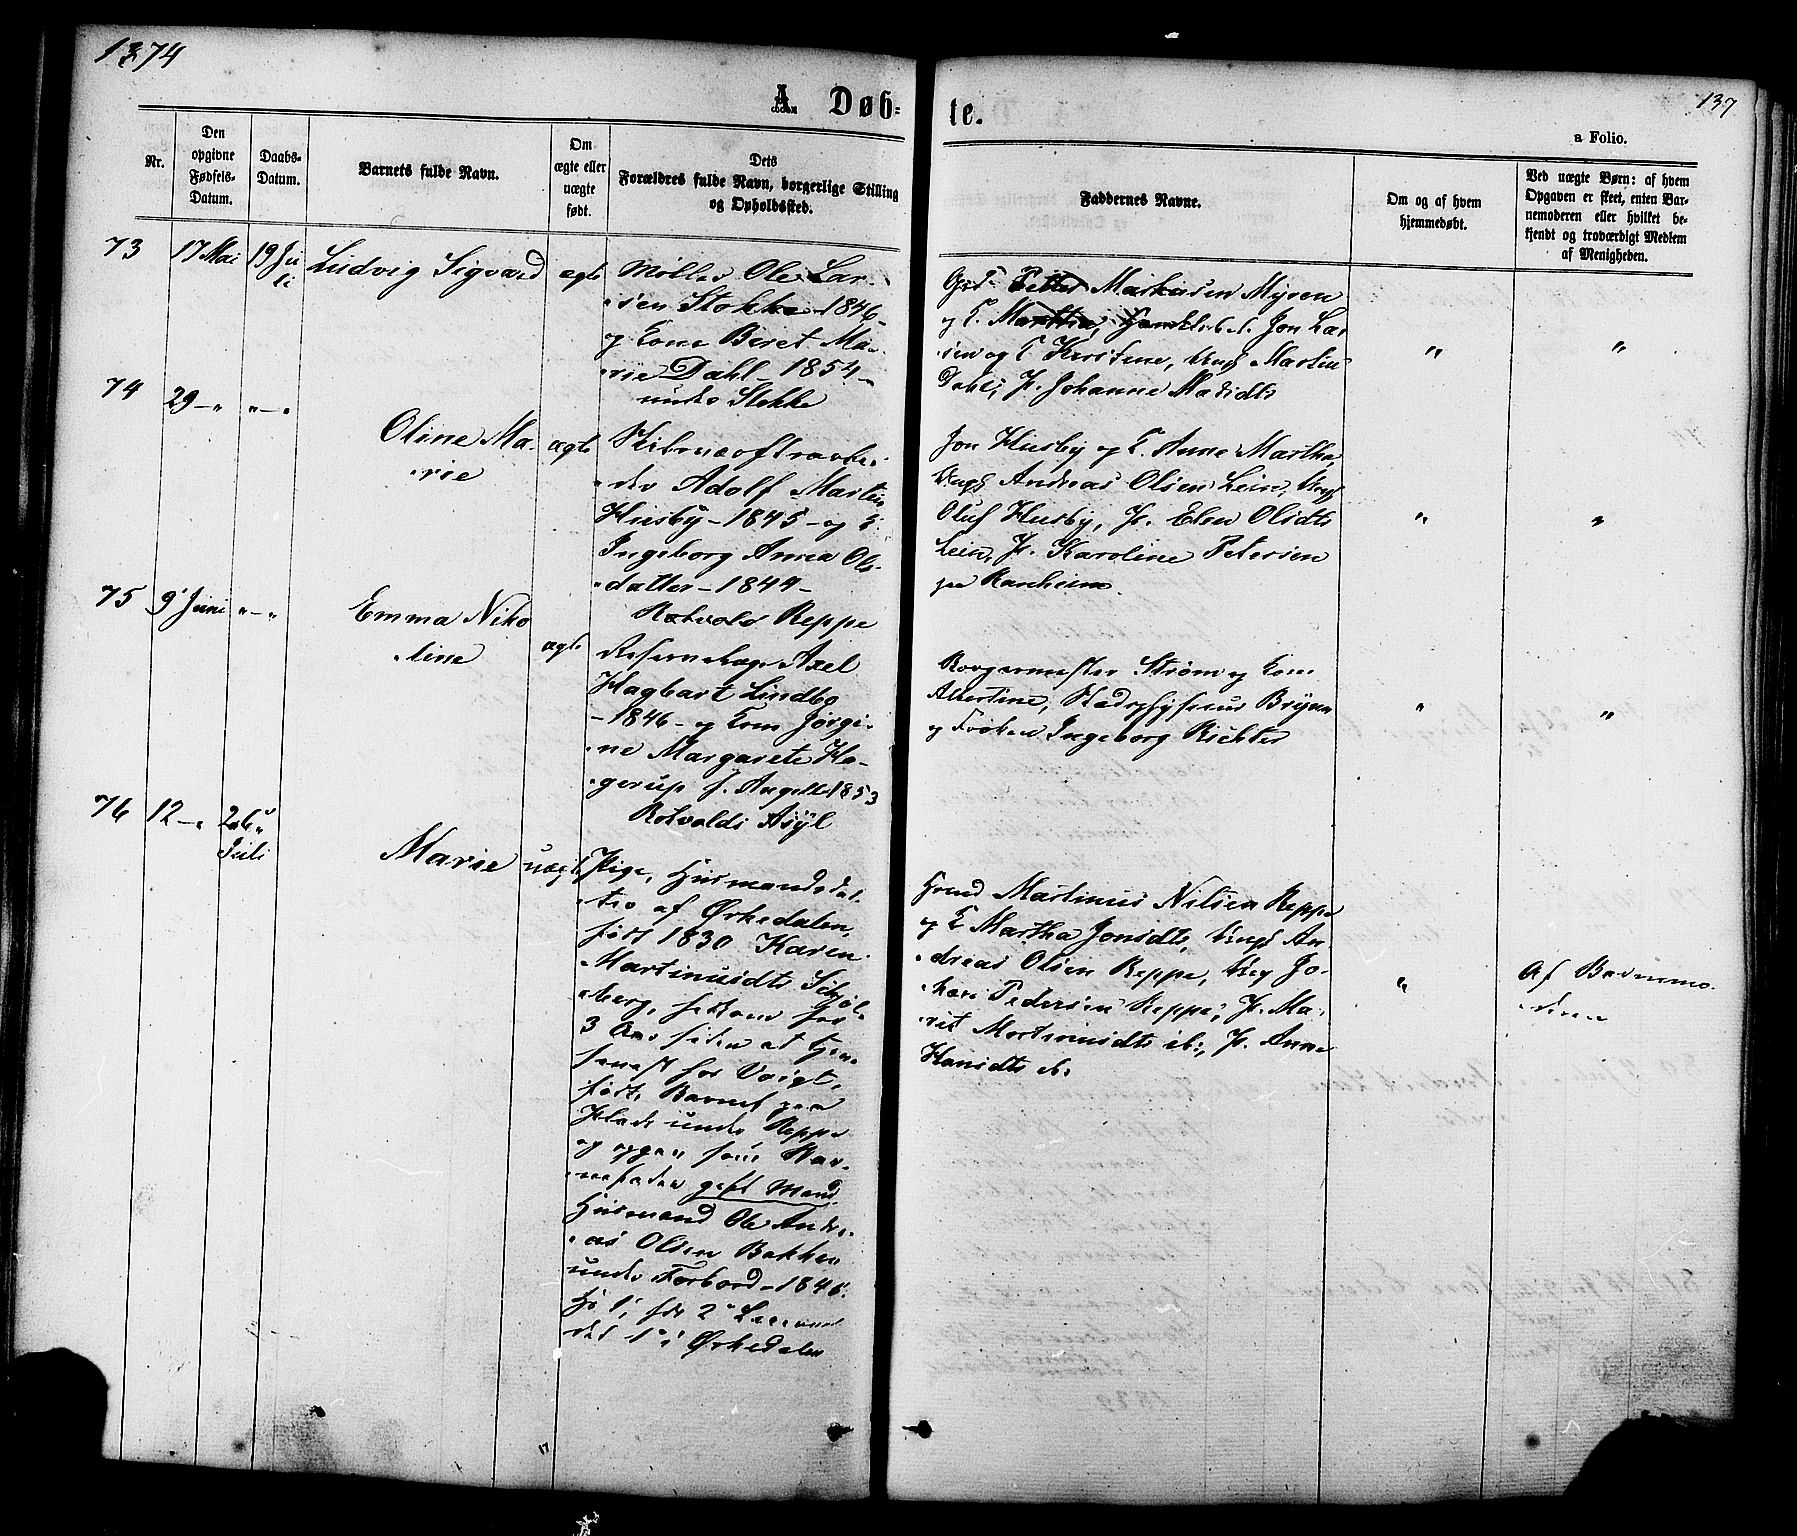 1874
137
A. Døb-
te.
a Folio.
Nr.
Den
opgivne
Fødsels-
Datum.
Daabs-
Datum.
Barnets fulde Navn.
Om
ægte eller
uægte
født.
Dets
Forældres fulde Navn, borgerlige Stilling
og Opholdssted.
Faddernes Navne.
Om og af hvem
hjemmedøbt.
Ved uægte Børn: af hvem
Opgaven er skeet, enten Bar-
nemoderen eller hvilket be-
kjendt og troværdigt Medlem
af Menigheden.
73
17 Mai
19 Ju
li
Ludvig Sigvard
ægte
Møller Ole Lar-
sen Stokke 1846
og Kone Beret Ma-
rie Dahl 1854
under Stokke
Petter Markusen Myren
og K. Marthe, Jon Lar
sen og K Kirstine, Ungk Martin
Dahl, P. Johanne
"
"
74
29 - "
" - "
Oline Ma-
rie
ægte
der Adolf Martin
Husby - 1845 - og K.
Ingeborg Anna Ols-
datter - 1844 -
Rotvold Reppe
Jon Husby og K. Anne Martha,
Ungk Andreas Olsen Lein, Ungk
Oluf Husby, P. Elen Olsdtr
Lein, P. Karoline Petersen
paa Ranheim.
"
"
75
9 Juni
" - "
Emma Niko
line
ægte
Axel
Hagbart Lindbo
- 1846 - og Kone Jørgi-
ne Margarete Ha-
gerup f. Angell 1853
Rotvolds Asyl
Strøm og Kone
Albertine, Bryn
og Frøken Ingeborg Richter
"
"
76
12 - "
26
Juli
Marie
uægte
Pige, Husmandsdat-
ter af Ørkedalen,
født 1830 Karen
Martinusdtr
berg, for
3 Aar siden at tjene
for Voigt,
født Barnet paa
under Reppe
og som Bar-
nefader gift Mand
Husmand Ole Andre-
as Olsen Bakken
under Forbord - 1846.
det 1 i Ørkedalen
Martinus Nilsen Reppe
og K Martha Jonsdtr, Ungk An-
dreas Olsen Reppe, Ung Jo-
han Pedersen Reppe, P. Ma-
rit Martinusdtr ib., P. Anne
Hansdtr ib.
"
Af Barnemo-
deren